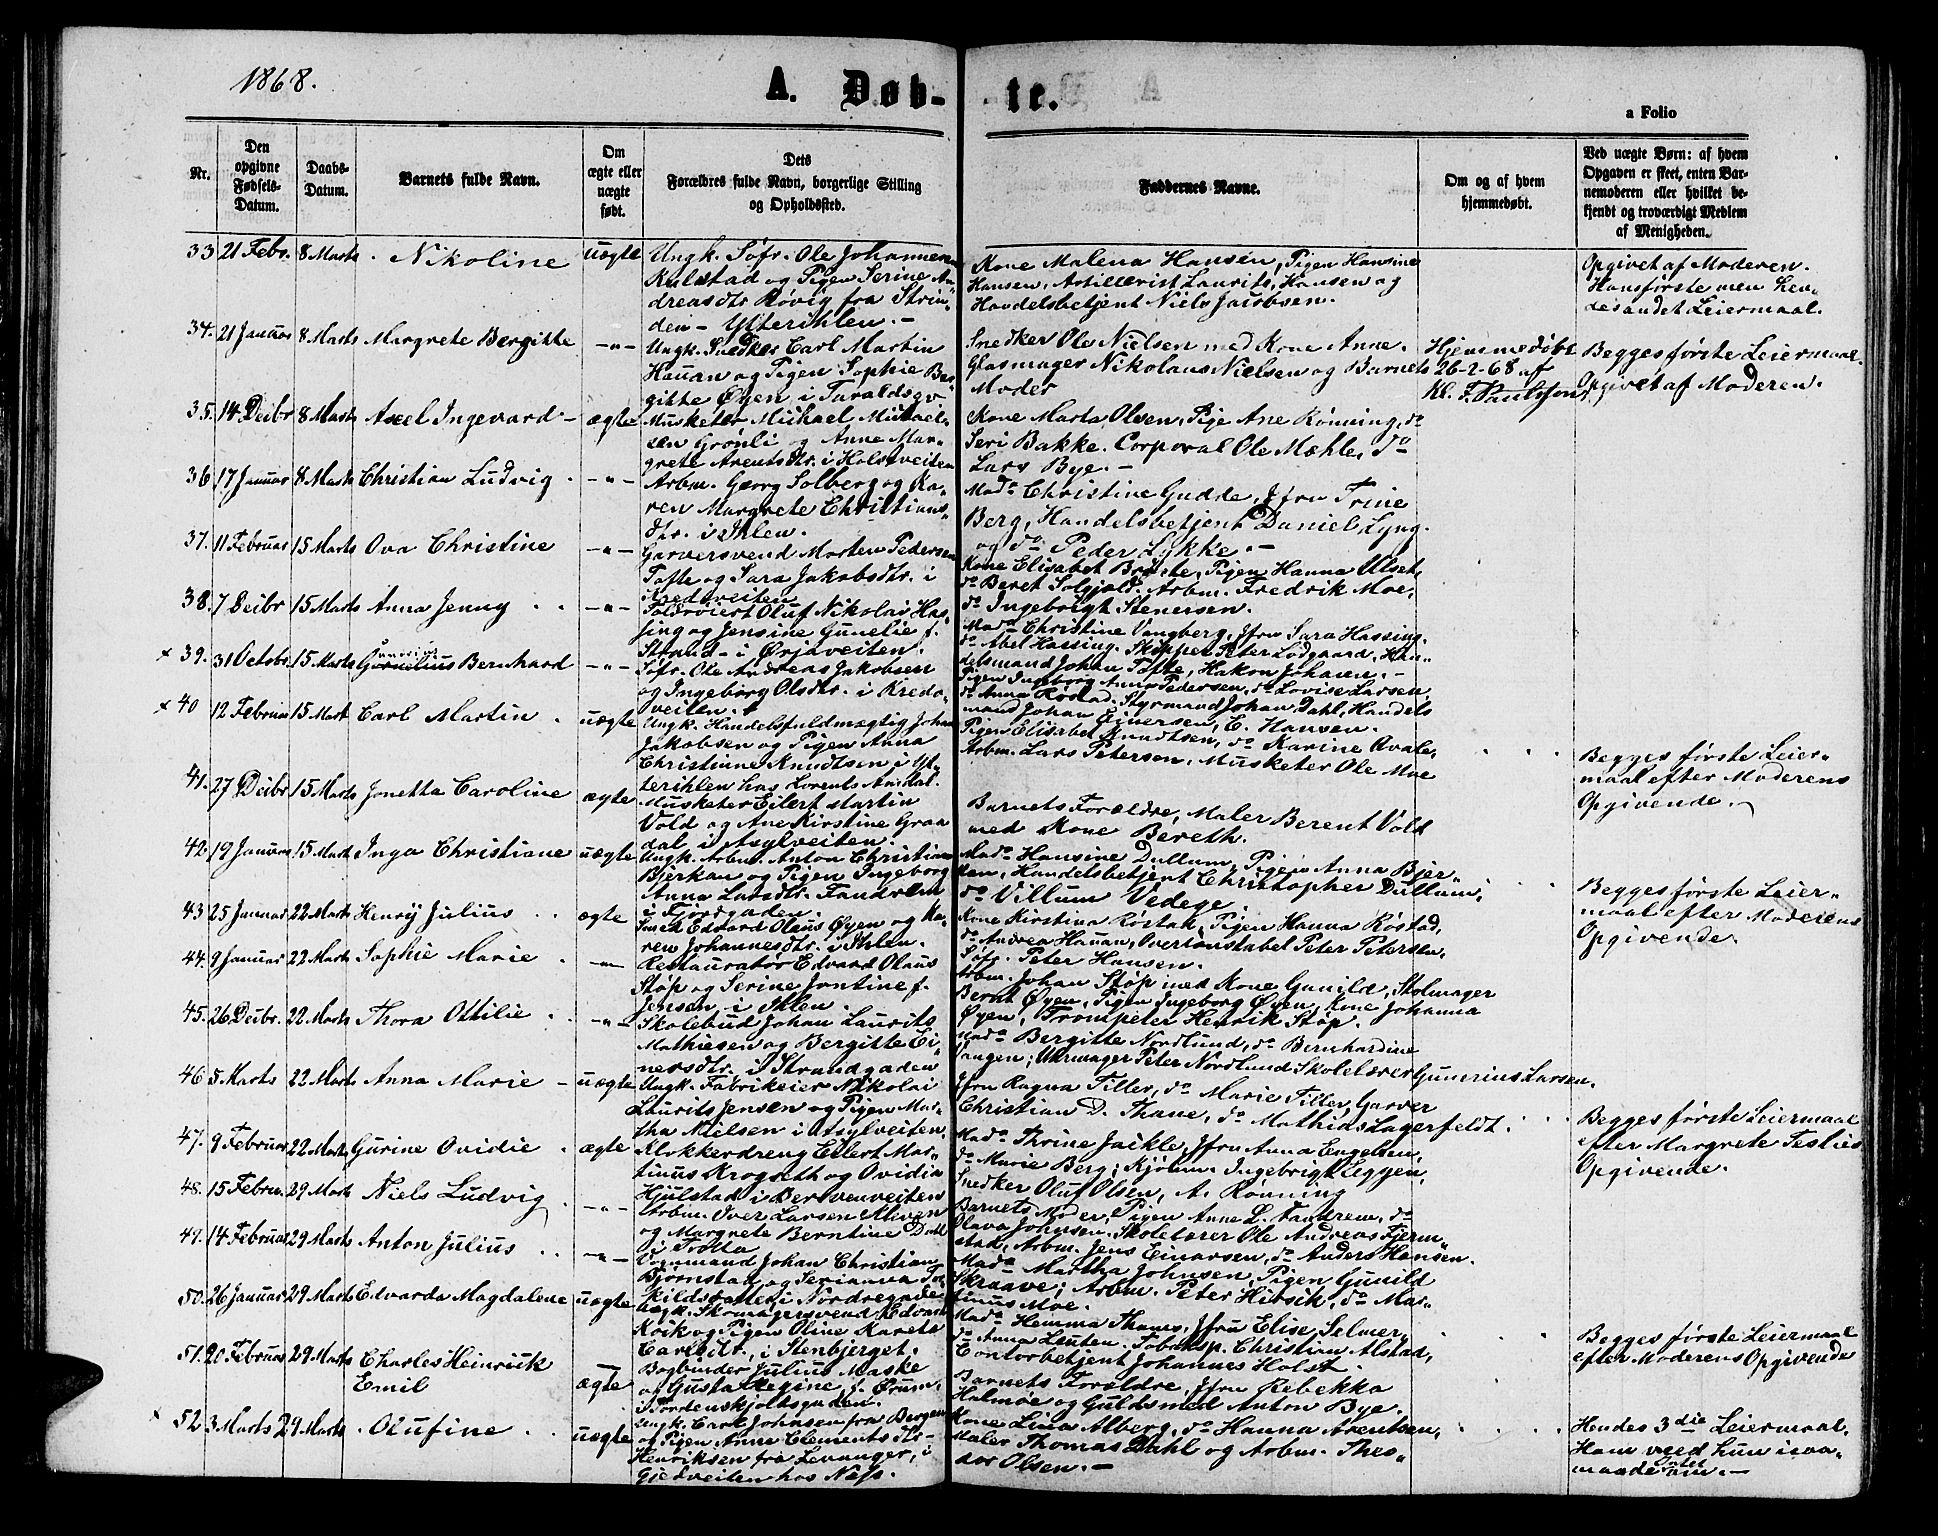 1868.
A. Døb-
te.
a Folio
Nr.
Den opgivne Fødsels-Datum.
Daabs-Datum.
Barnets fulde Navn.
Om ægte eller uægte født.
Dets Forældres fulde Navn, borgerlige Stilling og Opholdssted.
Faddernes Navne.
Om og af hvem hjemmedøbt.
Ved uægte Børn: af hvem Opgaven er skeet, enten Barnemoderen eller hvilket bekjendt og troværdigt Medlem af Menigheden.
33 21 Febr. 8 Marts Nikoline uægte
Ungk. Søfr. Ole Johannesen
Kulstad og Pigen Serine An-
dreasdtr Røvig fra Strin-
den - Ytterihlen. -
Kone Malena Hansen, Pigen Hansine
Hansen, Artillerist Laurits Hansen og
Handelsbetjent Niels Jacobsen.
Opgivet af Moderen.
Hans første men hen-
des andet Leiermaal.
34. 21 Januar 8 Marts Margrete Bergitte -"-
Ungk. Snedker Carl Martin
Hauan og Pigen Sophie Ber-
gitte Øyen i Taraldsgv
Snedker Ole Nielsen med Kone Anne.
Glasmager Nikolaus Nielsen og Barnets
Moder
Hjemmedøbt
26-2-68 af
Kl. F. Paulsson.
Begges første Leiermaal
Opgivet af Moderen.
35. 14 Decbr 8 Marts Axel Ingevard - ægte
Musketer Michael Michael-
sen Grønli og Anne Mar-
grete Arentsdtr. i Holstveiten
Kone Marta Olsen, Pige Ane Rønning, do
Seri Bakke. Corporal Ole Mæhle, do
Lars Bye. -
36 17 Januar 8 Marts Christian Ludvig. -"-
Arbm. Georg Solberg og Ka-
ren Margrete Christians-
dtr. i Ihlen.
Mad. Christine Gudde, Jfru Trine
Berg, Handelsbetjent Daniel Lyng.
og do Peder Lykke. -
37. 11 Februar 15 Marts Ova Christine -"-
Garversvend Morten Pedersen
Tofte og Sara Jakobsdtr. i
Kredsveiten
Kone Elisabet Brøste, Pigen Hanna Ulset,
do Beret Solgjald. Arbm. Fredrik Moe,
do Ingebrigt Stenersen.
38. 7 Decbr 15 Marts Anna Jenny . . -"-
Toldroiert Oluf Nikolai Has-
sing og Jensine Gunelie f.
Strand - i Ørjaveiten.
Mad. Christine Vangberg, Jfru Sara Hassing.
do Abel Hassing. Skipper Peter Lodgaard, Han-
delsmand Johan Tofte, Hakon Johansen. -
x 39. 31 Octobr. 15 Marts Bernhard -"-
Søfr. Ole Andreas Jakobsen
og Ingeborg Olsdtr. i Kreds-
veiten.
Pigen Ingeborg Anna Pedersen, do Lovise Larsen,
do Anna Røstad. Styrmand Johan Dahl, Handels
mand Johan Einersen, E. Hansen.
x 40 12 Februar 15 Mart Carl Martin . uægte
Ungk. Handelsfuldmægtig Johan
Jakobsen og Pigen Anna
Christiane Knudtsen i Yt-
terihlen hos Lorents Amdal.
Pigen Elisabet Knudtsen, do Karine Qvale,
Arbm. Lars Petersen, Musketer Ole Moe
Begges første Leier-
maal efter Moderens
Opgivende.
41. 27 Decbr 15 Marts Jonetta Caroline ægte
Musketer Eilert Martin
Vold og Ane Kirstine Graa
dal i Asylveiten.
Barnets Forældre, Maler Berent Vold
med Kone Bereth.
42. 19 Januar 15 Mart Inga Christiane uægte
Ungk. Arbm. Anton Christian
Bjerkan og Pigen Ingeborg
Anna Larsdtr. Fandrem
i Fjordgaden.
Mad. Hansine Dullum, Pigen Anna Bjer-
ken, Handelsbetjent Christopher Dullum,
do Villum Vedege.
Begges første Leier-
maal efter Moderens
Opgivende.
43 25 Januar 22 Marts Henry Julius . . ægte
Smed Edvard Olaus Øyen og Ka-
ren Johannesdtr. i Ihlen.
Kone Kirstina Røstak, Pigen Hanna Røstad,
do Andrea Hauan, Overkonstabel Peter Petersen,
Søfr. Peter Hansen.
44. 9 Januar 22 Marts Sophie Marie . -"-
Restauratør Edvard Olaus
Støp og Serine Jontine f.
Jensen i Ihlen.
Arbm. Johan Støp med Kone Gunild, Skomager
Bernt Øyen, Pigen Ingeborg Øyen, Kone Johanna
Øyen, Trompeter Henrik Støp.
45. 26 Decbr. 22 Marts Thora Ottilie . . -"-
Skolebud Johan Laurits
Mathiesen og Bergitte Ei-
nersdtr. i Strandgaden
Mad. Bergitte Nordlund, do Bernhardine
Vangen; Uhrmager Peter Nordlund Skolelærer Gunerius Larsen.
46 5 Marts 22 Marts Anna Marie - uægte
Ungk. Fabrikeier Nikolai
Laurits Jensen og Pigen Mar-
tha Nielsen i Asylveiten.
Jfru Ragna Tiller, do Marie Tiller, Garver
Christian D. Thane, do Mathias Lagerfeldt. . .
Begges første Leiermaal
efter Margrete Testies
Opgivende.
47. 9 Februar 22 Mart Gurine Ovidie . ægte
Klokkerdreng Eilert Mar-
tinus Krogseth og Ovidia
Hjulstad i Dervenveiten
Mad. Thrine Jaikle, Jfru Anna Engelsen,
do Marie Berg; Kjøbm. Ingebrigt Leggen,
Snedker Oluf Olsen, A. Rønning
48. 15 Februar 29 Marts Niels Ludvig . -"-
Arbm. Over Larsen Aliven
og Margrete Berntine Dahl
i Trolla
Barnets Moder, Pigen Anne L. Fandrem, do
Olava Johnsen. Skolelærer Ole Andreas Fjerm-
stad, Arbm. Jens Einarsen, do Anders Hansen.
49. 14 Februar 29 Marts Anton Julius . . -"-
Vognmand Johan Christian
Bjørnstad og Serianna
kildsdatter i Nordregaden
Mad. Martha Johnsen, Pigen Gunild
Skraave; Arbm. Peter Hirsik, do Mar-
tinus Moe.
50. 26 Januar 29 Marts Edvarda Magdalene uægte
Ungk. Skomagersvend Edvard
Kvik og Pigen Oline Karete
Carlsdtr. i Stenbjerget.
Mad. Hemma Thams, Jfru Elise Selmer,
do Anna Leuten. Tobaksp. Christian Alstad,
Contorbetjent Johannes Holst.
Begges første Leiermaal
efter Moderens Opgivende
51. 20 Februar 29 Marts Charles Heinrick
Emil ægte
Bogbinder Julius Maske
og Gusta Regine f. Ørum,
i Tordenskjoldsgaden.
Barnets Forældre, Jfru Rebekka
Halmøe og Guldsmed Anton Bye.
x 52. 3 Marts 29 Marts . Olufine . . uægte
Ungk. Carl Johnsen fra Bergen
og Pigen Anne Clementsdtr-
Henriksen fra Levanger, i
Gjedveiten hos Næss.
Kone Lina Alberg, do Hanna Arentsen,
Maler Thomas Dahl og Arbm. Theo-
dor Olsen. -
Hendes 3die Leiermaal.
Ham veed hun isaa-
maade intet om. -